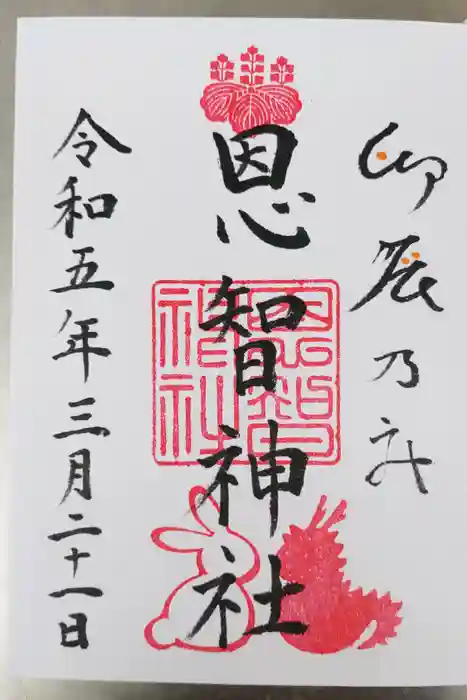 卯辰乃社
恩智神社
恩智
神社
令和五年三月二十一日